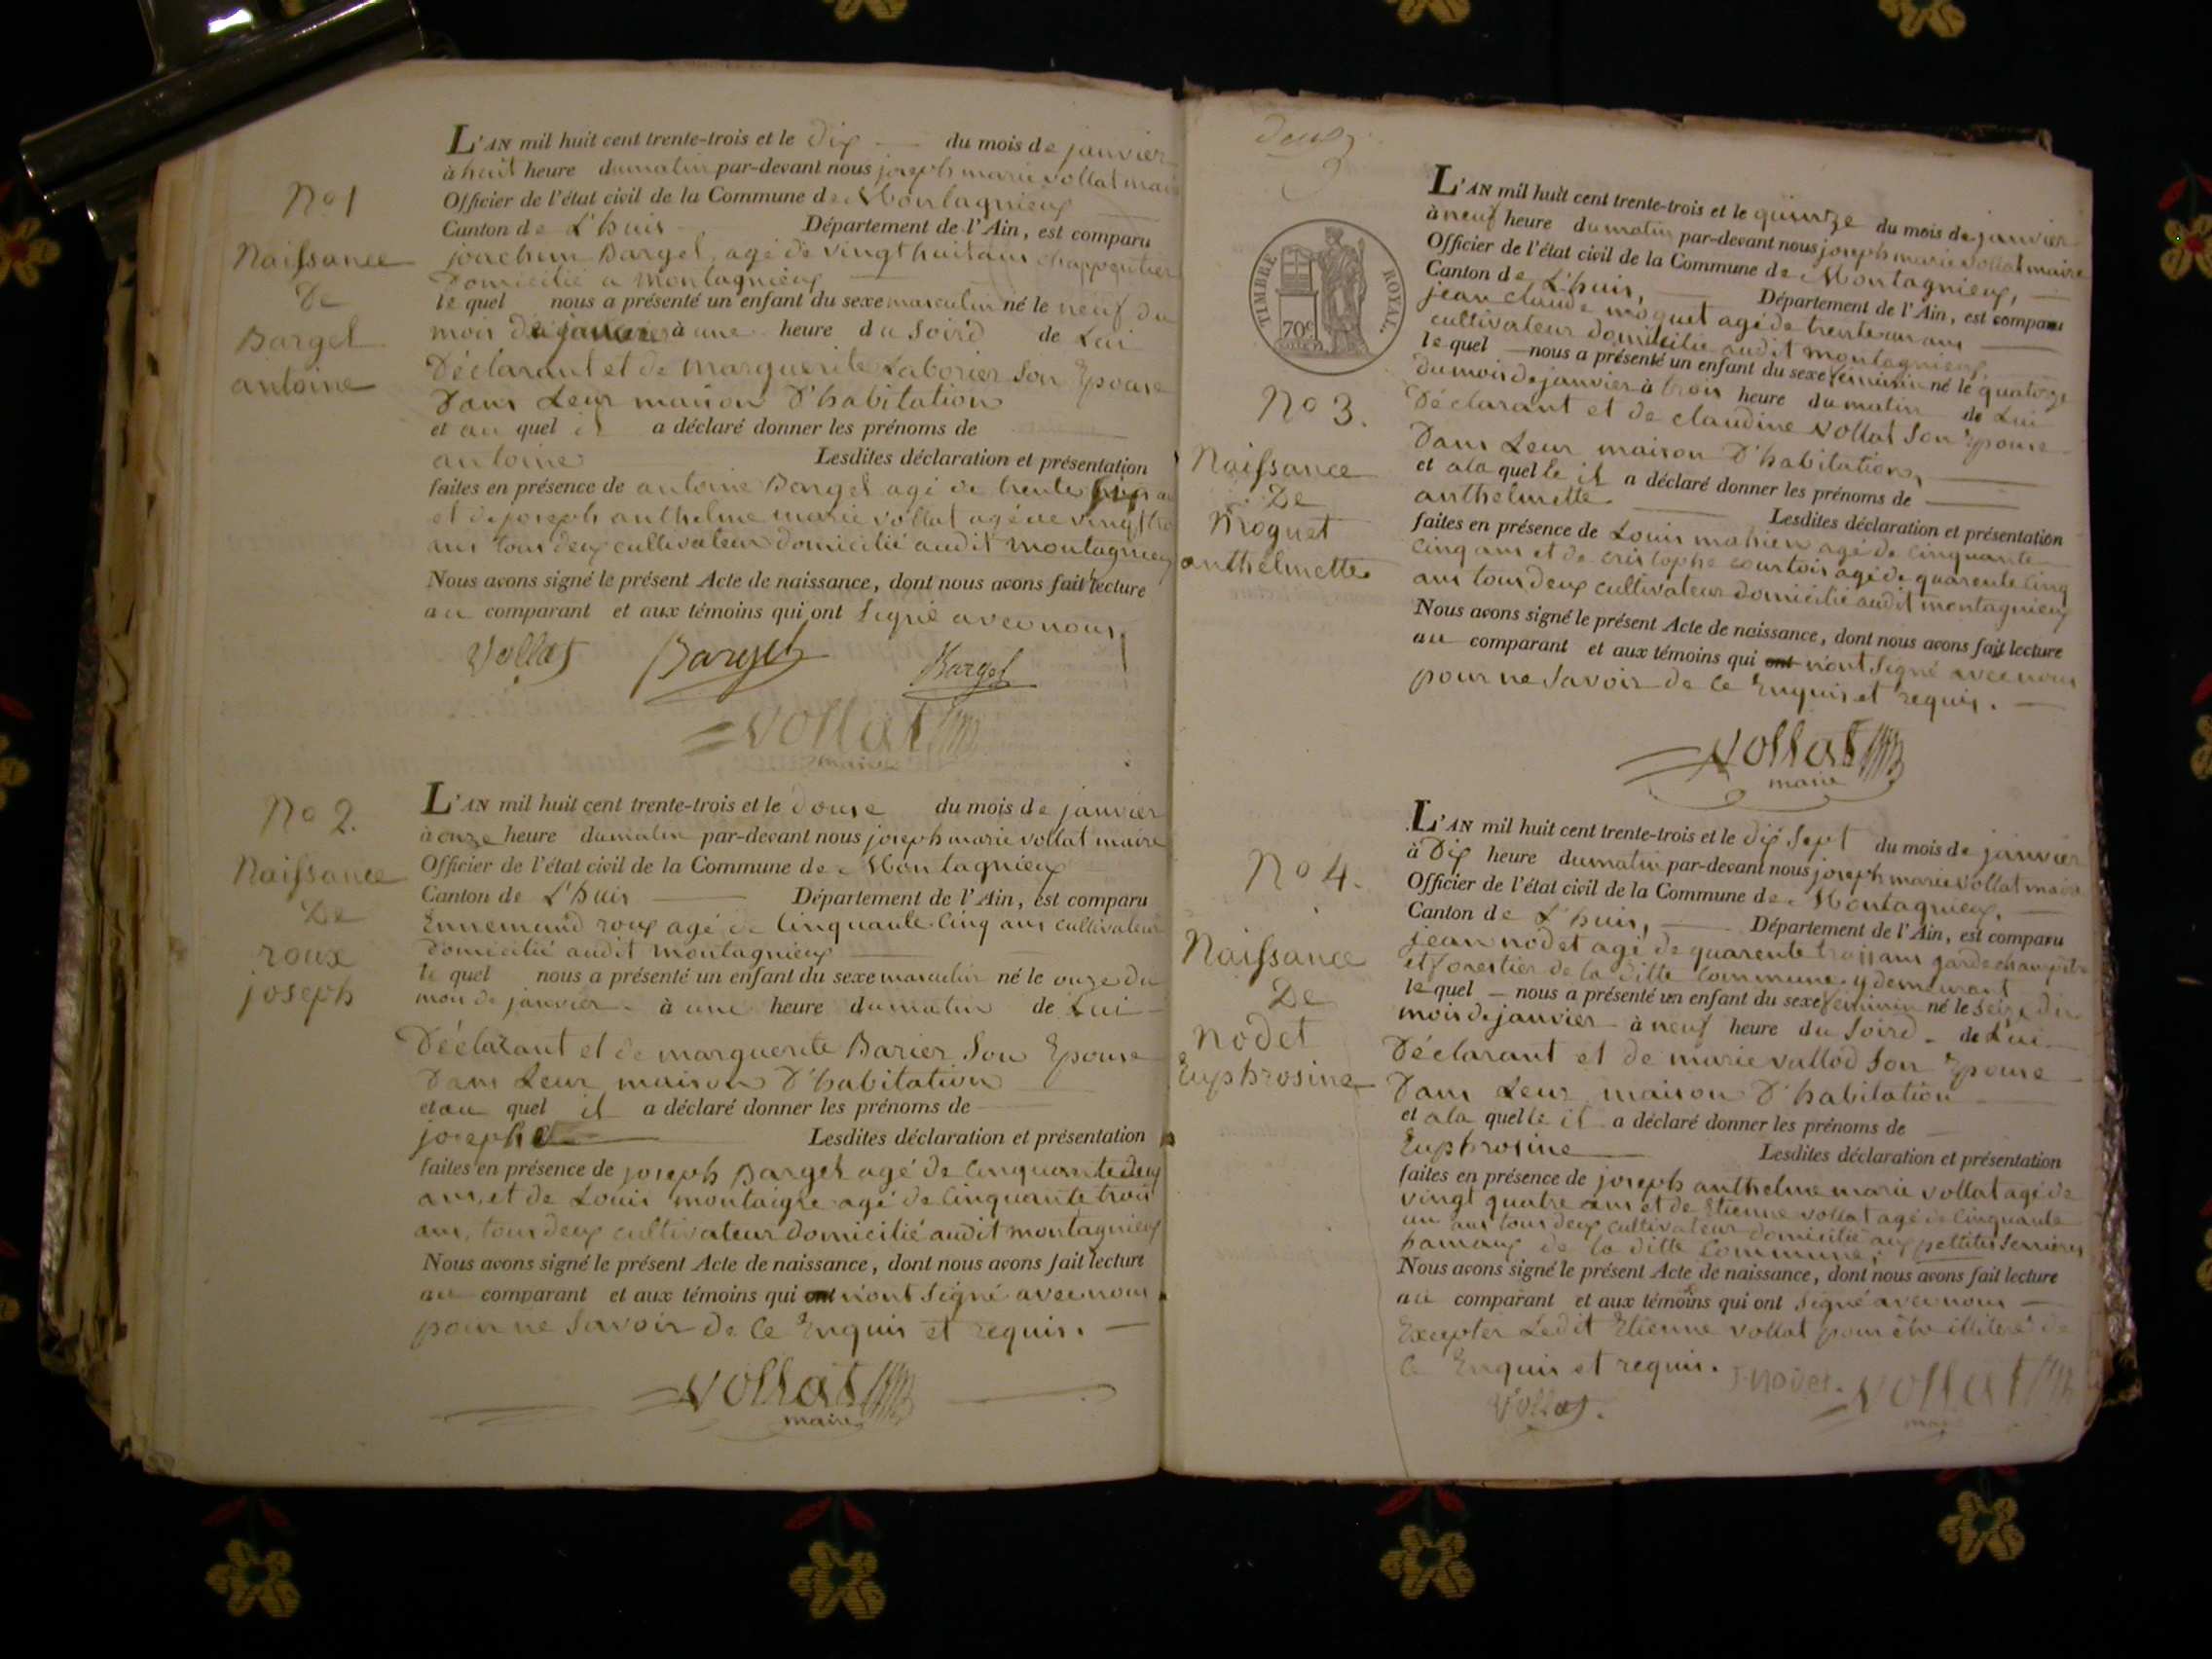 No 1
Naissance
De
Bargel
antoine
L'AN mil huit cent trente-trois et le dix du mois de janvier
à huit heure du matin par-devant nous joseph marie vollat
Officier de l'état civil de la Commune de Montagnieux
Canton de L'huis Département de l'Ain, est comparu
joachim Bargel agé de vingt huit ans charpentier
Domicilié a Montagnieux
le quel nous a présenté un enfant du sexe masculin né le neuf du
mois de janvier à une heure du Soird de Lui
Déclarant et de marguerite Laborier Son Epouse
Dans Leur maison D'habitation
et au quel il a déclaré donner les prénoms de
antoine Lesdites déclaration et présentation
faites en présence de antoine Bargel agé de trente
et de joseph anthelme marie vollat agé de vingt
ans tous deux cultivateur domicilié audit montagnieux
Nous avons signé le présent Acte de naissance, dont nous avons fait lecture
au comparant et aux témoins qui ont Signé avec nous
Vollat Bargel Bargel
vollat
maire
No 2.
Naissance
De
roux
joseph
L'AN mil huit cent trente-trois et le douse du mois de janvier
à onze heure du matin par-devant nous joseph marie vollat maire
Officier de l'état civil de la Commune de Montagnieux
Canton de L'huis Département de l'Ain, est comparu
Ennemand roux agé de Cinquante Cinq ans cultivateur
domicilié audit montagnieux
le quel nous a présenté un enfant du sexe masculin né le onze du
mois de janvier à une heure du matin de Lui
Déclarant et de marguerite Barier Son Epouse
Dans Leur maison D'habitation
et au quel il a déclaré donner les prénoms de
joseph Lesdites déclaration et présentation
faites en présence de joseph Bargel agé de Cinquante deux
ans, et de Louis montaigre agé de Cinquante trois
ans, tous deux cultivateur domicilié audit montagnieux
Nous avons signé le présent Acte de naissance, dont nous avons fait lecture
au comparant et aux témoins qui ont n'ont Signé avec nous
pour ne Savoir de Ce Enquis et requis.
vollat
maire
deux
TIMBRE ROYAL.
70c
No 3.
Naissance
De
Moquet
anthelmette
L'AN mil huit cent trente-trois et le quintze du mois de janvier
à neuf heure du matin par-devant nous joseph marie vollat maire
Officier de l'état civil de la Commune de Montagnieux,
Canton de L'huis, Département de l'Ain, est comparu
jean claude moquet agé de trente un ans
cultivateur domicilié audit montagnieux
le quel nous a présenté un enfant du sexe féminin né le quatorze
du mois de janvier à trois heure du matin de Lui
Déclarant et de claudine vollat Son Epouse
Dans Leur maison D'habitation,
et a la quelle il a déclaré donner les prénoms de
anthelmette. Lesdites déclaration et présentation
faites en présence de Louis mahieu agé de cinquante
Cinq ans et de cristophe courtois agé de quarente Cinq
ans tous deux cultivateur domicilié audit montagnieux
Nous avons signé le présent Acte de naissance, dont nous avons fait lecture
au comparant et aux témoins qui ont n'ont Signé avec nous
pour ne Savoir de Ce Enquis et requis.
vollat
maire
No 4.
Naissance
De
Nodet
Euphrosine
L'AN mil huit cent trente-trois et le dix Sept du mois de janvier
à Dix heure du matin par-devant nous joseph marie vollat maire
Officier de l'état civil de la Commune de Montagnieux,
Canton de L'huis, Département de l'Ain, est comparu
jean nodet agé de quarente trois ans garde champêtre
et forestier de la ditte Commune y demeurant
le quel nous a présenté un enfant du sexe féminin né le seize du
mois de janvier à neuf heure du Soird. de Lui
Déclarant et de marie vallod Son Epouse
Dans Leur maison D'habitation
et a la quelle il a déclaré donner les prénoms de
Euphrosine Lesdites déclaration et présentation
faites en présence de joseph anthelme marie vollat agé de
vingt quatre ans et de Etienne vollat agé de Cinquante
un ans tous deux cultivateur domicilié aux pettites Serrières
hamaux de la ditte Commune;
Nous avons signé le présent Acte de naissance, dont nous avons fait lecture
au comparant et aux témoins qui ont Signé avec nous
Excepter Ledit Etienne vollat pour être illitéré de
Ce Enquis et requis. J nodet. vollat
Vollat.